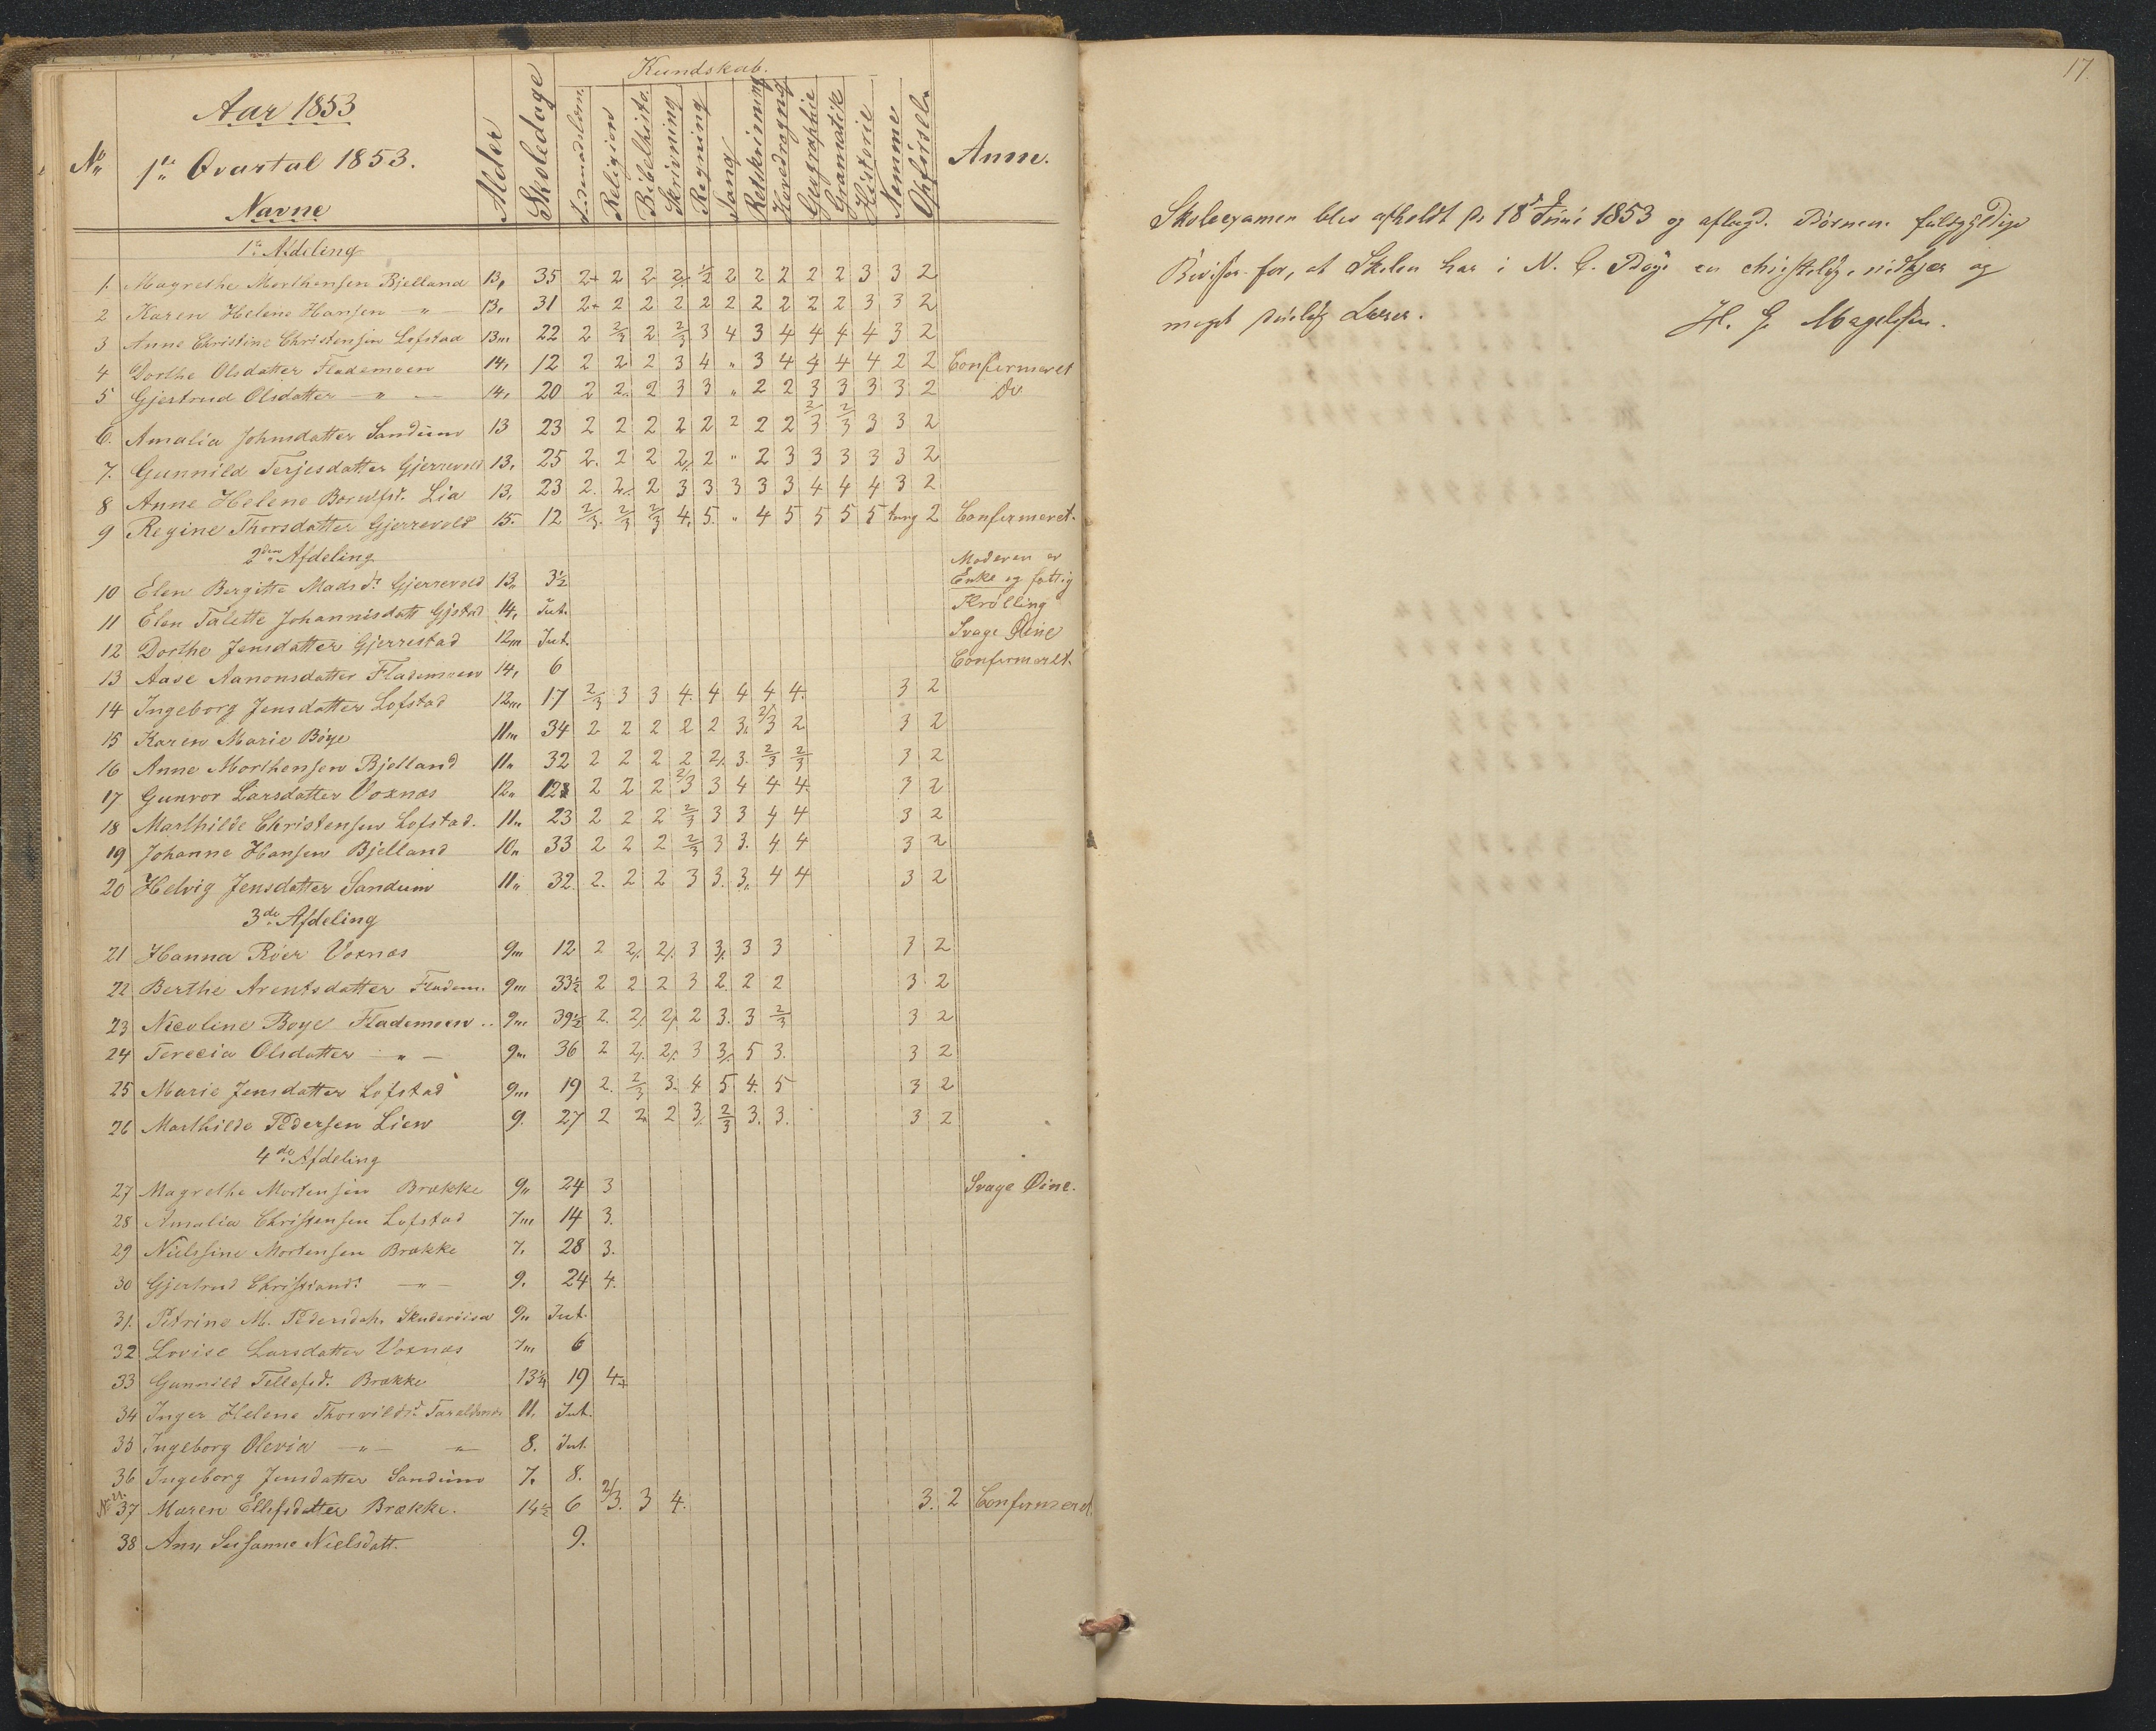 Aar 1853
1ste Qvartal 1853.
No Navne Alder Skoledage Kundskab. Religion Bibelhisto. Skrivning Regning Sang Retskrivning Hovedregng Geographie Gramatik Historie Nemme Opførsel. Anm.
1ste Afdeling
1. Magrethe Morthensen Bjelland 13, 35 2+ 2 2 2/. ½ 2 2 2 2 2 3 3 2
2 Karen Helene Hansen — " — 13, 31 2+ 2 2 2 2 2 2 2 2 2 3 3 2
3 Anne Christine Christensen Lofstad 13m 22 2 2/3 2 2/3 3 4 3 4 4 4 4 3 2
4 Dorthe Olsdatter Flademoen 14, 12 2 2 2 3 4 " 3 4 4 4 4 2 2 Confirmeret
5 Gjertrud Olsdatter — " — 14, 20 2 2. 2 3 3 " 2 2 3 3 3 3 2 Do
6. Amalia Johnsdatter Sandum 13 23 2 2 2 2 2 2 2 2 2/3 2/3 3 3 2
7. Gunnild Terjesdatter Gjerrevold 13, 25 2. 2 2 2/. 2 " 2 3 3 3 3 3 2
8 Anne Helene Lia 13, 23 2. 2/. 2 3 3 3 3 3 4 4 4 3 2
9 Regine Thorsdatter Gjerrevold 15. 12 2/3. 2/3 2/3 4. 5. " 4 5 5 5 5 tung 2 Confirmeret.
2den Afdeling
10 Elen Bergitte Madsd: Gjerrevold 13, 3½ Moderen er Enke og fattig
11 Elen Talette Johannisdatt Gjstad 14, Int. Krølling
12 Dorthe Jensdatter Gjerrestad 12m Int. Svage Øine
13 Aase Aanonsdatter Flademoen 14, 6 Confirmeret.
14 Ingeborg Jensdatter Lofstad 12m 17 2/3 3 3 4. 4 4 4 4. 3 2
15 Karen Marie Böye 11m 34 2 2 2 2 2 3. 2/3 2 3 2
16 Anne Morthensen Bjelland 11" 32 2 2 2 2 2/. 3. 2/3 2/3 3 2
17 Gunvor Larsdatter Voxnæs 12" 2 2 2 2/3 3 4 4 4. 3 2
18 Marthilde Christensen Lofstad. 11" 23 2 2 2 2/3 3 3 4 4 3 2
19 Johanne Hansen Bjelland 10" 33 2 2 2 2/3 3 3. 4 4 3 2
20 Helvig Jensdatter Sandum 11" 32. 2. 2 2 3 3. 3. 4 4 3 2
3de Afdeling
21 Hanna Röer Voxnæs 9m 12 2 2/. 2/. 3 3/. 3 3 3 2
22 Berthe Arentsdatter Fladem. 9m 33½ 2 2 2 3 2. 2 2 3 2
23 Nicoline Boye Flademoen.. 9m 39½ 2. 2/. 2/. 2 3. 3 2/3 3 2
24 Terecia Olsdatter — " — 9m 36 2 2/. 2/. 3 3/. 5 3. 3 2
25 Marie Jensdatter Lofstad 9m 19 2. 2/3 3. 4 5 4. 5 3 2
26 Marthilde Pedersen Lien 9. 27 2 2 2 3/. 2/3 3. 3. 3 2
4de Afdeling
27 Magrethe Mortensen Brække 9" 24 3 Svage Øine.
28 Amalia Christensen Lofstad 7m 14 3.
29 Nielsine Mortensen Brække 7. 28 3.
30 Gjertrud Christiansd: — " — 9. 24 4.
31. Petrine M. Pedersdatr. 9" Int.
32 Lovise Larsdatter Voxnæs 7m 6
33 Gunnild Tellefsd. Brække 13¾ 19 4+
34 Inger Helene 11. Int.
35 Ingeborg Olevia — " — " — 8. Int.
36 Ingeborg Jensdatter Sandum 7. 8.
37 Maren Ellefsdatter Brække. 14½ 6 2/3. 3 4. 3. 2 Confirmeret.
38 Ann Susanne Nielsdatt. 9.
17.
Skoleexamen blev afholdt d. 18de Juni 1853 og aflagd. Börnene fuldgyldige
Beviser for, at Skolen har i N. C. Boye en christelig, nidkjær og
meget duelig Lærer. H. G. Magelssen.